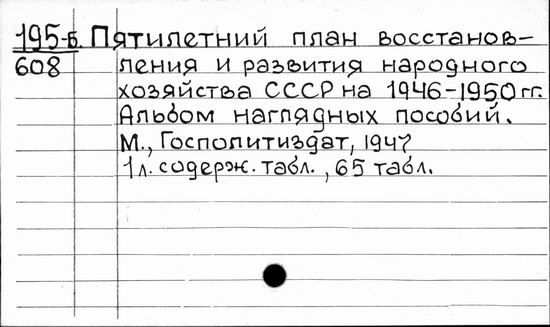 195-Б. Пятилетний план восстанов-
608 ления и развития народного
хозяйства СССР на 1946-1950 гг.
Альбом наглядных пособий.
М., Госполитиздат, 1947
1 л. содерж. табл., 65 табл.